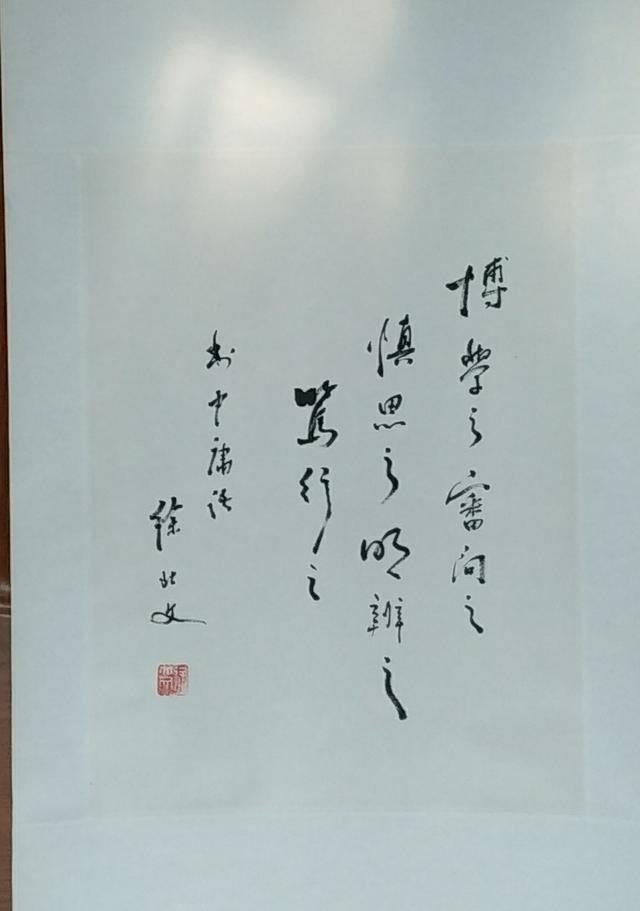 博學之審问之
慎思之明辨之
篤行之
书中庸语
徐北文